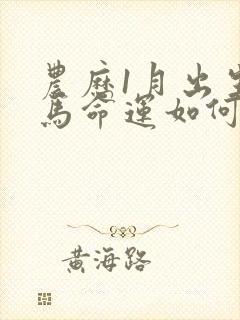 農曆1月出生
馬命運如何
黃海路